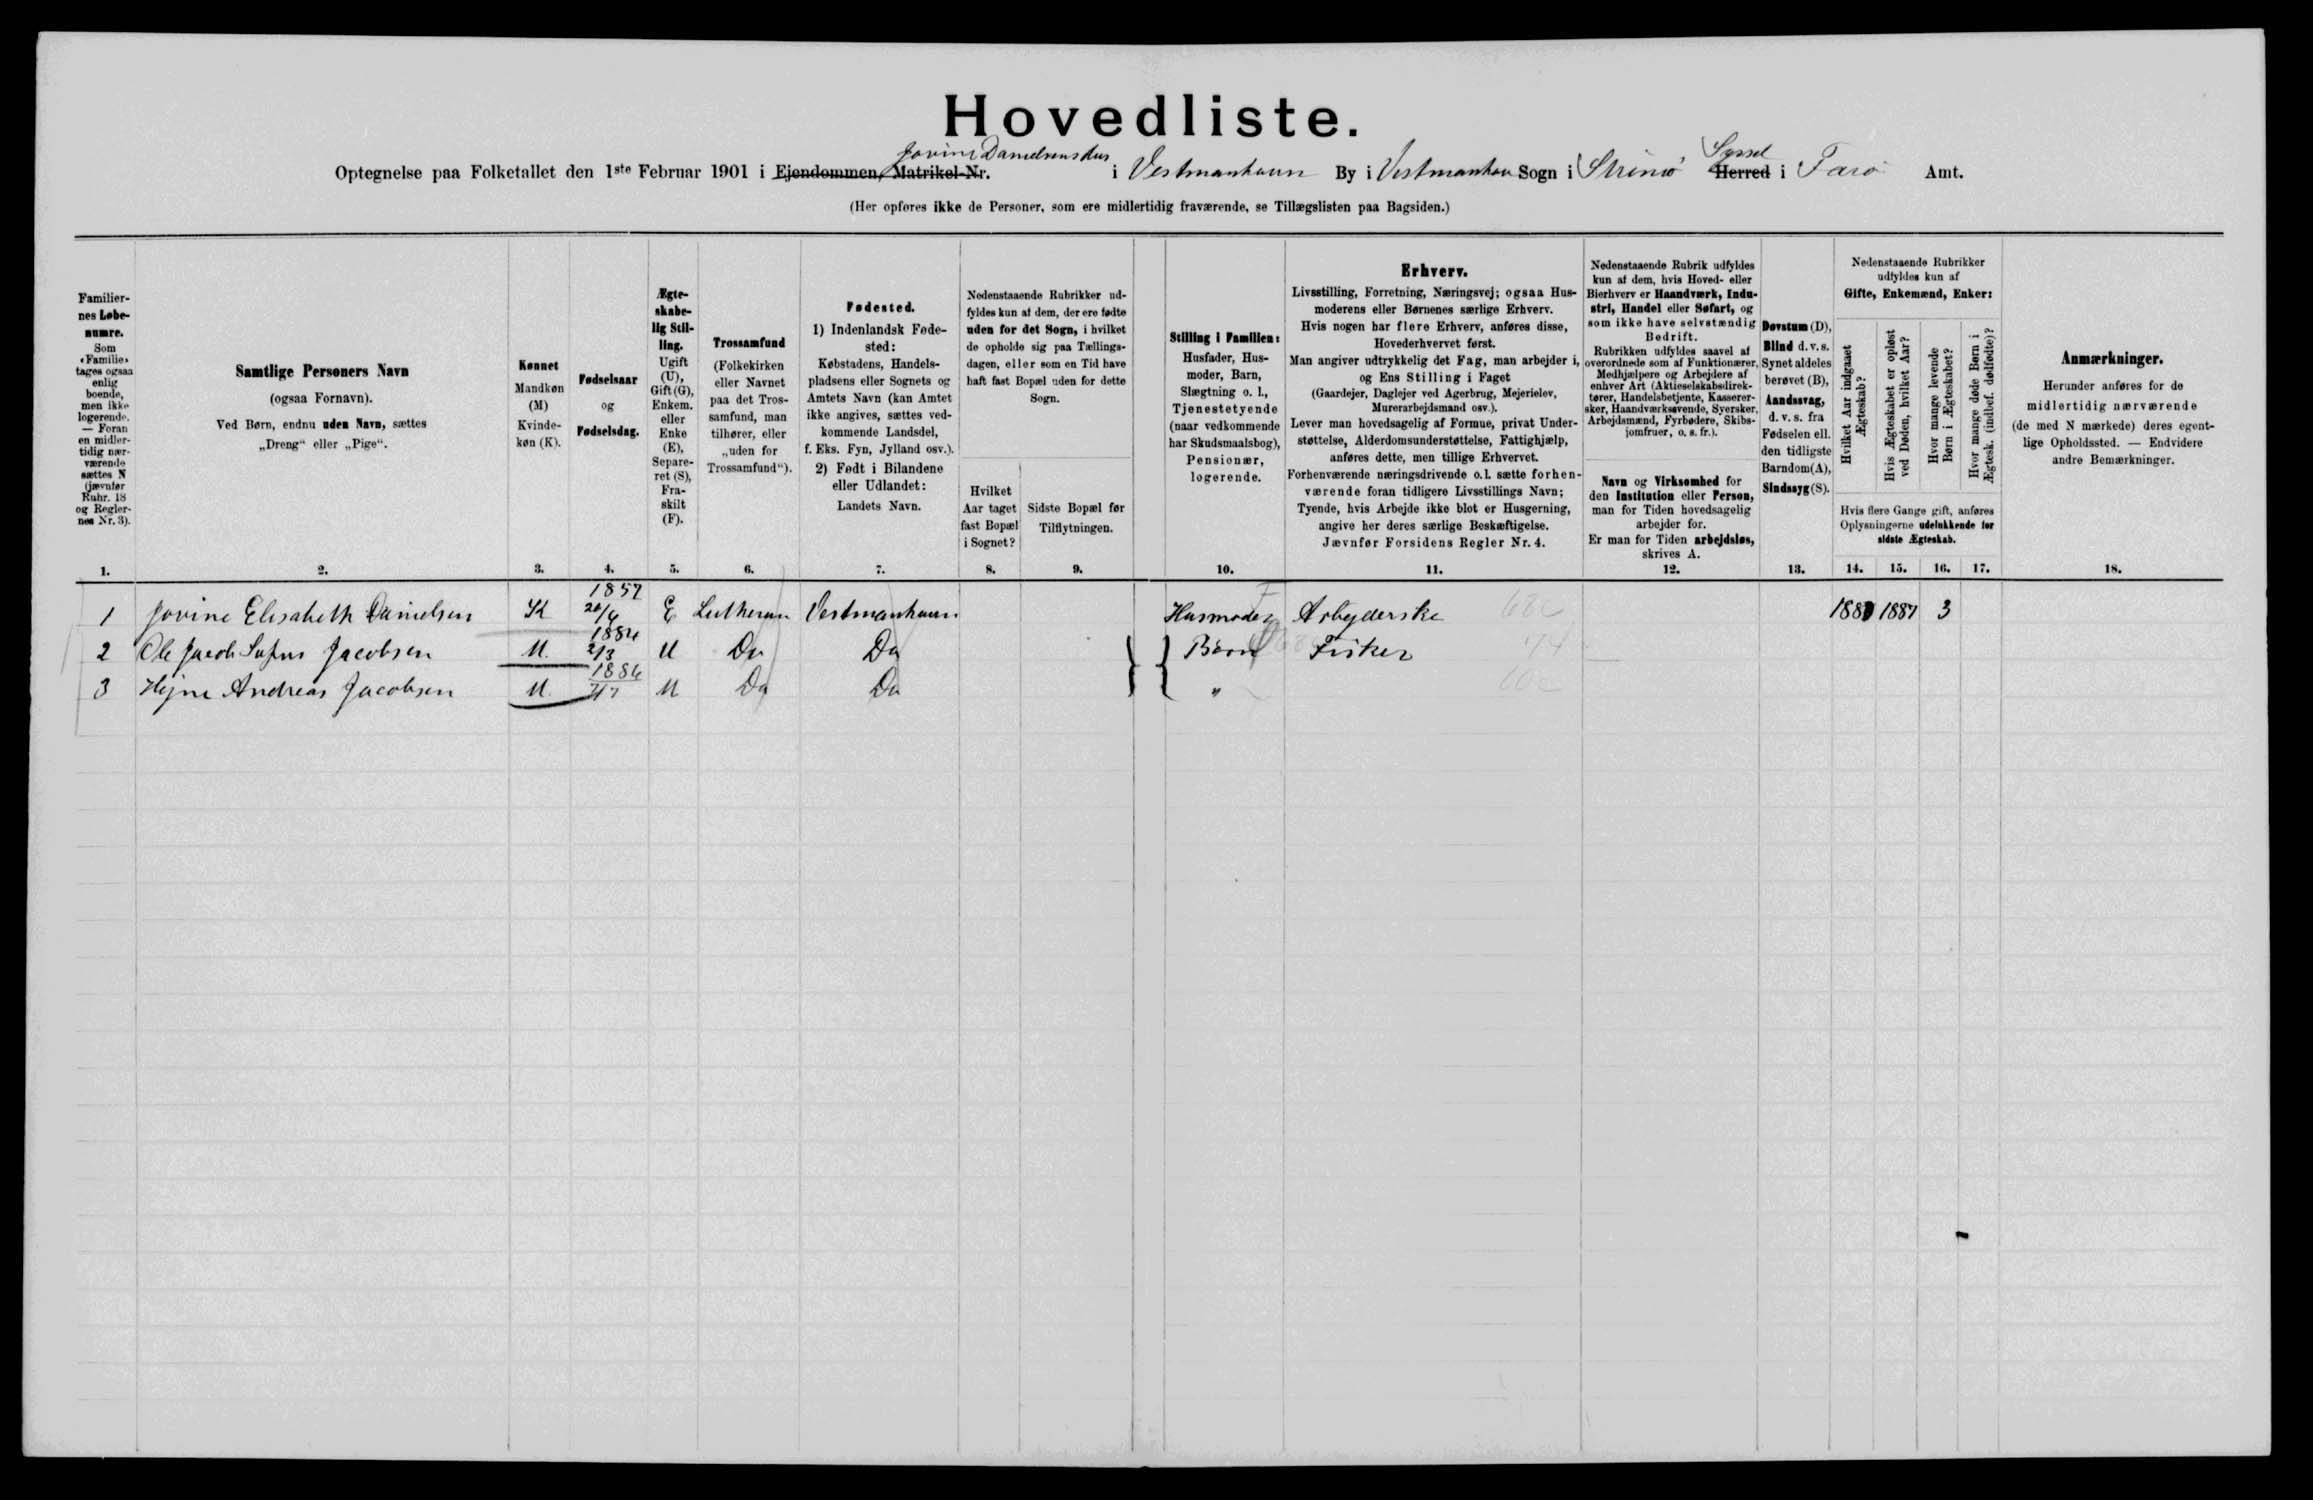 Hovedliste.
Jovine Danielsens Hus Syssel
Optegnelse paa Folketallet den 1ste Februar 1901 i Ejendommen, Matrikel-Nr. i Vestmanhavn By i Vestmanhavn Sogn i Strømø Herred i Færø Amt.
(Her opføres ikke de Personer, som ere midlertidig fraværende, se Tillægslisten paa Bagsiden.)
Familier-
nes Løbe-
numre.
Som
«Familie»
tages ogsaa
enlig
boende,
men ikke
logerende.
— Foran
en midler-
tidig nær-
værende
sættes N
(jævnfør
Rubr. 18
og Regler-
nes Nr. 3).
1.
Samtlige Personers Navn
(ogsaa Fornavn).
Ved Børn, endnu uden Navn, sættes
„Dreng“ eller „Pige“.
2.
Kønnet
Mandkøn
(M)
Kvinde-
køn (K).
3.
Fødselsaar
og
Fødselsdag.
4.
Ægte-
skabe-
lig Stil-
ling.
Ugift
(U),
Gift (G),
Enkem.
eller
Enke
(E),
Separe-
ret (S),
Fra-
skilt
(F).
5.
Trossamfund
(Folkekirken
eller Navnet
paa det Tros-
samfund, man
tilhører, eller
„uden for
Trossamfund“).
6.
Fødested.
1) Indenlandsk Føde-
sted:
Købstadens, Handels-
pladsens eller Sognets og
Amtets Navn (kan Amtet
ikke angives, sættes ved-
kommende Landsdel,
f. Eks. Fyn, Jylland osv.).
2) Født i Bilandene
eller Udlandet:
Landets Navn.
7.
Nedenstaaende Rubrikker ud-
fyldes kun af dem, der ere fødte
uden for det Sogn, i hvilket
de opholde sig paa Tællings-
dagen, eller som en Tid have
haft fast Bopæl uden for dette
Sogn.
Hvilket
Aar taget
fast Bopæl
i Sognet?
8.
Sidste Bopæl før
Tilflytningen.
9.
Stilling i Familien:
Husfader, Hus-
moder, Barn,
Slægtning o. l.,
Tjenestetyende
(naar vedkommende
har Skudsmaalsbog),
Pensionær,
logerende.
10.
Erhverv.
Livsstilling, Forretning, Næringsvej; ogsaa Hus-
moderens eller Børnenes særlige Erhverv.
Hvis nogen har flere Erhverv, anføres disse,
Hovederhvervet først.
Man angiver udtrykkelig det Fag, man arbejder i,
og Ens Stilling i Faget
(Gaardejer, Daglejer ved Agerbrug, Mejerielev,
Murerarbejdsmand osv.).
Lever man hovedsagelig af Formue, privat Under-
støttelse, Alderdomsunderstøttelse, Fattighjælp,
anføres dette, men tillige Erhvervet.
Forhenværende næringsdrivende o.l. sætte forhen-
værende foran tidligere Livsstillings Navn;
Tyende, hvis Arbejde ikke blot er Husgerning,
angive her deres særlige Beskæftigelse.
Jævnfør Forsidens Regler Nr. 4.
11.
Nedenstaaende Rubrik udfyldes
kun af dem, hvis Hoved- eller
Bierhverv er Haandværk, Indu-
stri, Handel eller Søfart, og
som ikke have selvstændig
Bedrift.
Rubrikken udfyldes saavel af
overordnede som af Funktionærer,
Medhjælpere og Arbejdere af
enhver Art (Aktieselskabsdirek-
tører, Handelsbetjente, Kasserer-
sker, Haandværkssvende, Syersker,
Arbejdsmænd, Fyrbødere, Skibs-
jomfruer, o. s. fr.).
Navn og Virksomhed for
den Institution eller Person,
man for Tiden hovedsagelig
arbejder for.
Er man for Tiden arbejdsløs,
skrives A.
12.
Døvstum (D),
Blind d. v. s.
Synet aldeles
berøvet (B),
Aandssvag,
d. v. s. fra
Fødselen ell.
den tidligste
Barndom (A),
Sindssyg (S).
13.
Nedenstaaende Rubrikker
udfyldes kun af
Gifte, Enkemænd, Enker:
Hvilket Aar indgaaet
Ægteskab?
Hvis Ægteskabet er opløst
ved Døden, hvilket Aar?
Hvor mange levende
Børn i Ægteskabet?
Hvor mange døde Børn i
Ægtesk. (indbef. dødfødte)?
Hvis flere Gange gift, anføres
Oplysningerne udelukkende for
sidste Ægteskab.
14. 15. 16. 17.
Anmærkninger.
Herunder anføres for de
midlertidig nærværende
(de med N mærkede) deres egent-
lige Opholdssted. — Endvidere
andre Bemærkninger.
18.
1 Jovine Elisabeth Danielsen K E Lutheran Vestmanhavn Husmoder Arbejderske 1887 3
2 Ole Jacob Sofus Jacobsen M. 1884 2/3 U Do Do Børn Fisker
3 Hejne Andreas Jacobsen M. 1886 U Do Do "